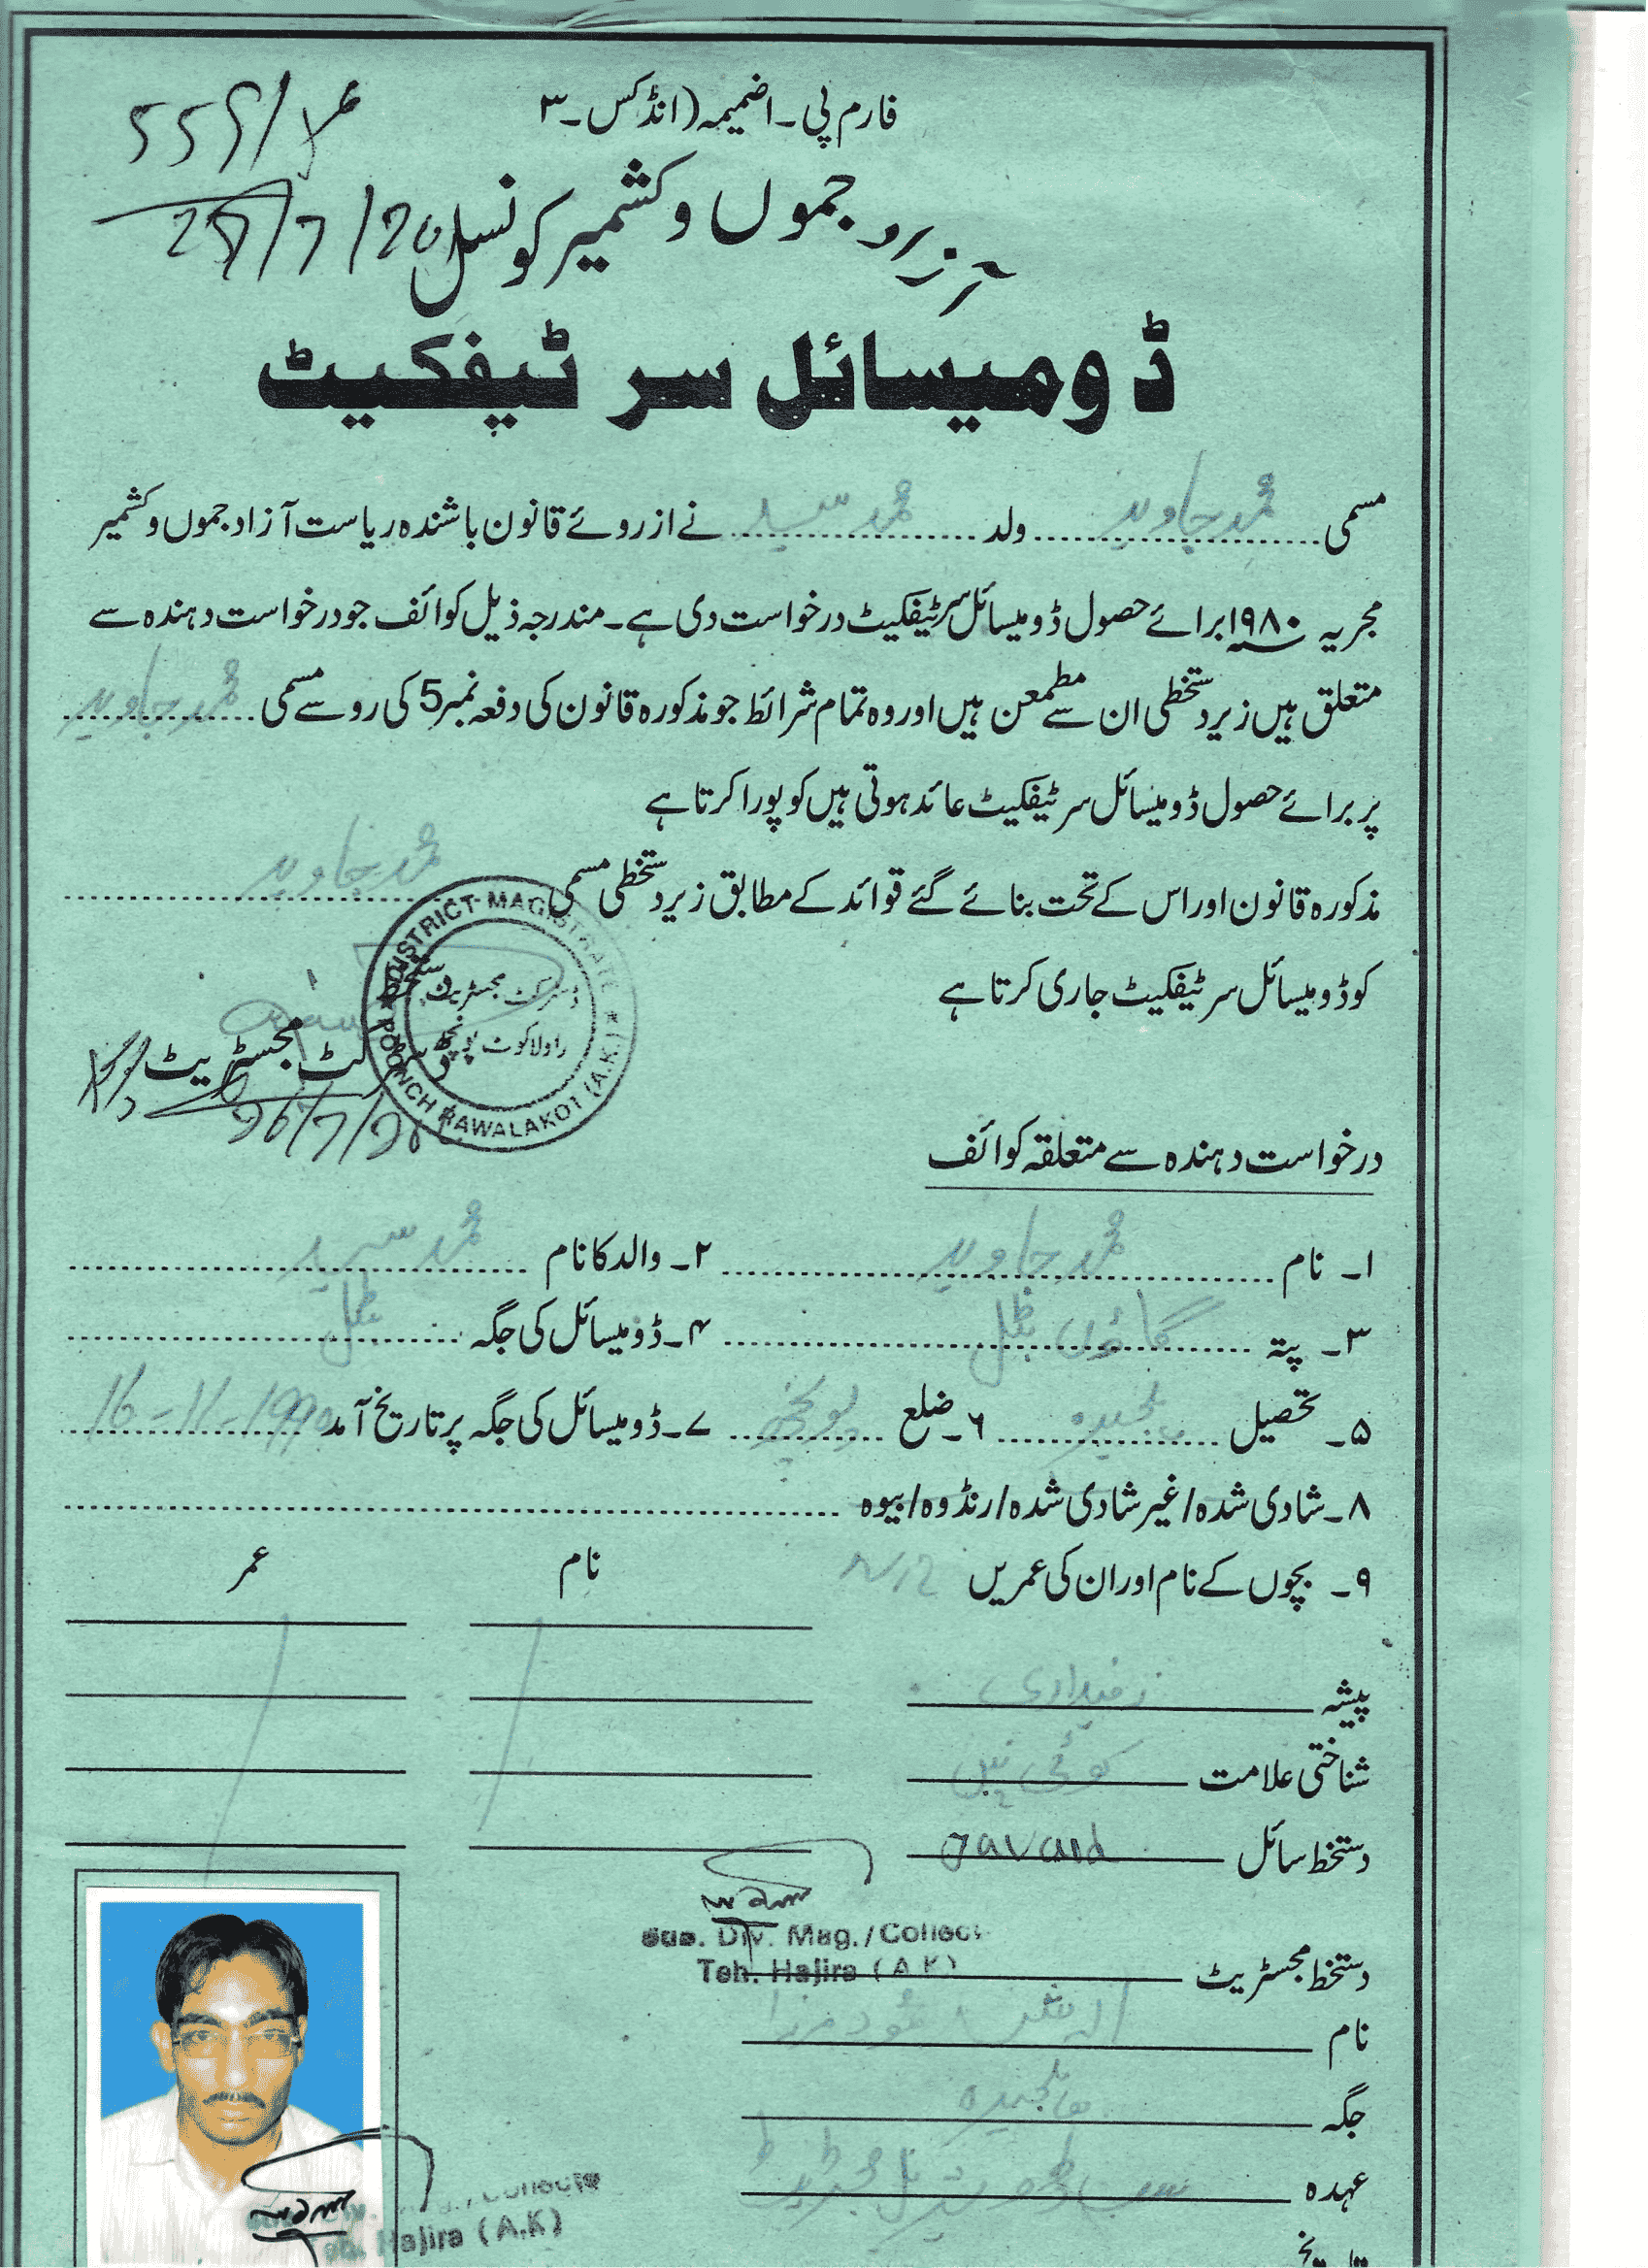 فارم پی۔ اضمیمہ (انڈکس۔۳
555/
آزاد جموں و کشمیر کونسل
ڈومیسائل سرٹیفکیٹ
مسمی محمد جاوید ولد محمد نے ازروئے قانون باشندہ ریاست آزاد جموں و کشمیر
مجریہ ۱۹۸۰ برائے حصول ڈومیسائل سرٹیفکیٹ درخواست دی ہے۔ مندرجہ ذیل کوائف جو درخواست دہندہ سے
متعلق ہیں زیر دستخطی ان سے مطمعن ہیں اور وہ تمام شرائط جو مذکورہ قانون کی دفعہ نمبر 5 کی رو سے مسمی محمد جاوید
پر برائے حصول ڈومیسائل سرٹیفکیٹ عائد ہوتی ہیں کو پورا کرتا ہے
مذکورہ قانون اور اس کے تحت بنائے گئے قوائد کے مطابق زیر دستخطی مسمی محمد جاوید
کو ڈومیسائل سرٹیفکیٹ جاری کرتا ہے
دستخط
ڈسٹرکٹ مجسٹریٹ
DISTRICT MAGISTRATE
POONCH RAWALAKOT (A.K.)
ڈسٹرکٹ مجسٹریٹ
راولاکوٹ پونچھ
درخواست دہندہ سے متعلقہ کوائف
۱۔ نام محمد جاوید ۲۔ والد کا نام محمد
۳۔ پتہ گاؤں ۴۔ ڈومیسائل کی جگہ
۵۔ تحصیل ہجیرہ ۶۔ ضلع پونچھ ۷۔ ڈومیسائل کی جگہ پر تاریخ آمد 16-11-1990
۸۔ شادی شدہ/غیر شادی شدہ/رنڈوہ/بیوہ
۹۔ بچوں کے نام اور ان کی عمریں نام عمر
پیشہ زمینداری
شناختی علامت کوئی نہیں
دستخط سائل Javaid
Sub. Div. Mag./Collect
Teh. Hajira (A.K)
دستخط مجسٹریٹ
نام
جگہ ہجیرہ
عہدہ سب ڈویژنل مجسٹریٹ
Hajira (A.K)
تاریخ